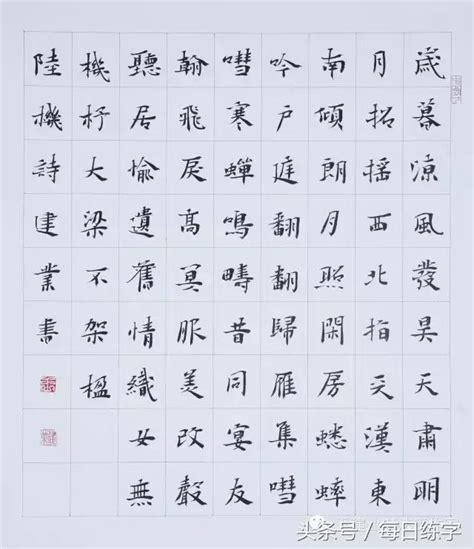 歲暮涼風發昊天肅明
月招摇西北指天漢東
南傾朗月照閑房蟋蟀
吟户庭翻翻歸雁集嘒
嘒寒蟬鳴疇昔同宴友
翰飛戾髙冥服美改聲
聽居愉遺舊情織女無
機杼大梁不架楹
陸機詩建業書
头条号 / 每日练字